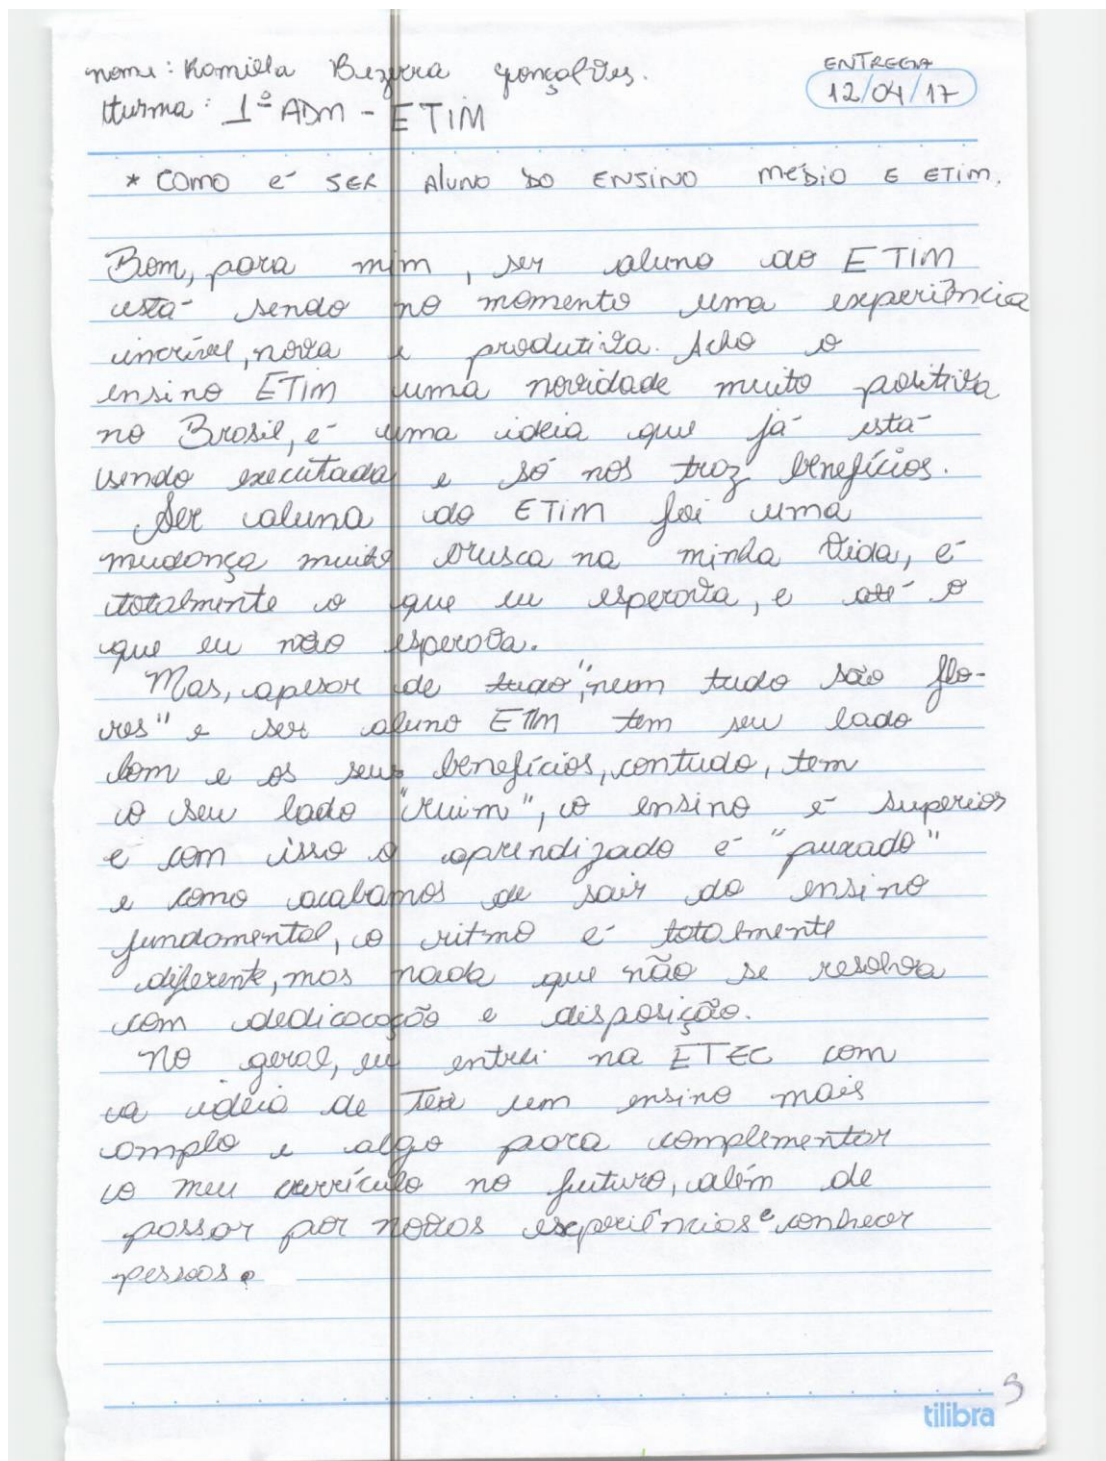 nome: Kamilla Bezerra Gonçalves.
ENTREGA
12/04/17
turma: 1º ADM - ETIM
* COMO é SER ALUNO DO ENSINO MÉDIO E ETIM.
Bom, para mim, ser aluno do ETIM
está sendo no momento uma experiência
incrível, nova e produtiva. Acho o
ensino ETIM uma novidade muito positiva
no Brasil, é uma ideia que já está
sendo executada e só nos traz benefícios.
Ser aluna do ETIM foi uma
mudança muito brusca na minha vida, é
totalmente o que eu esperava, e até o
que eu não esperava.
Mas, apesar de tudo, "nem tudo são flo-
res" e ser aluno ETIM tem seu lado
bom e os seus benefícios, contudo, tem
o seu lado "ruim", o ensino é superior
e com isso o aprendizado é "puxado"
e como acabamos de sair do ensino
fundamental, o ritmo é totalmente
diferente, mas nada que não se resolva
com dedicocação e disposição.
No geral, eu entrei na ETEC com
a ideia de ter um ensino mais
amplo e algo para complementar
o meu currículo no futuro, além de
passar por novas experiências e conhecer
pessoas.
tilibra